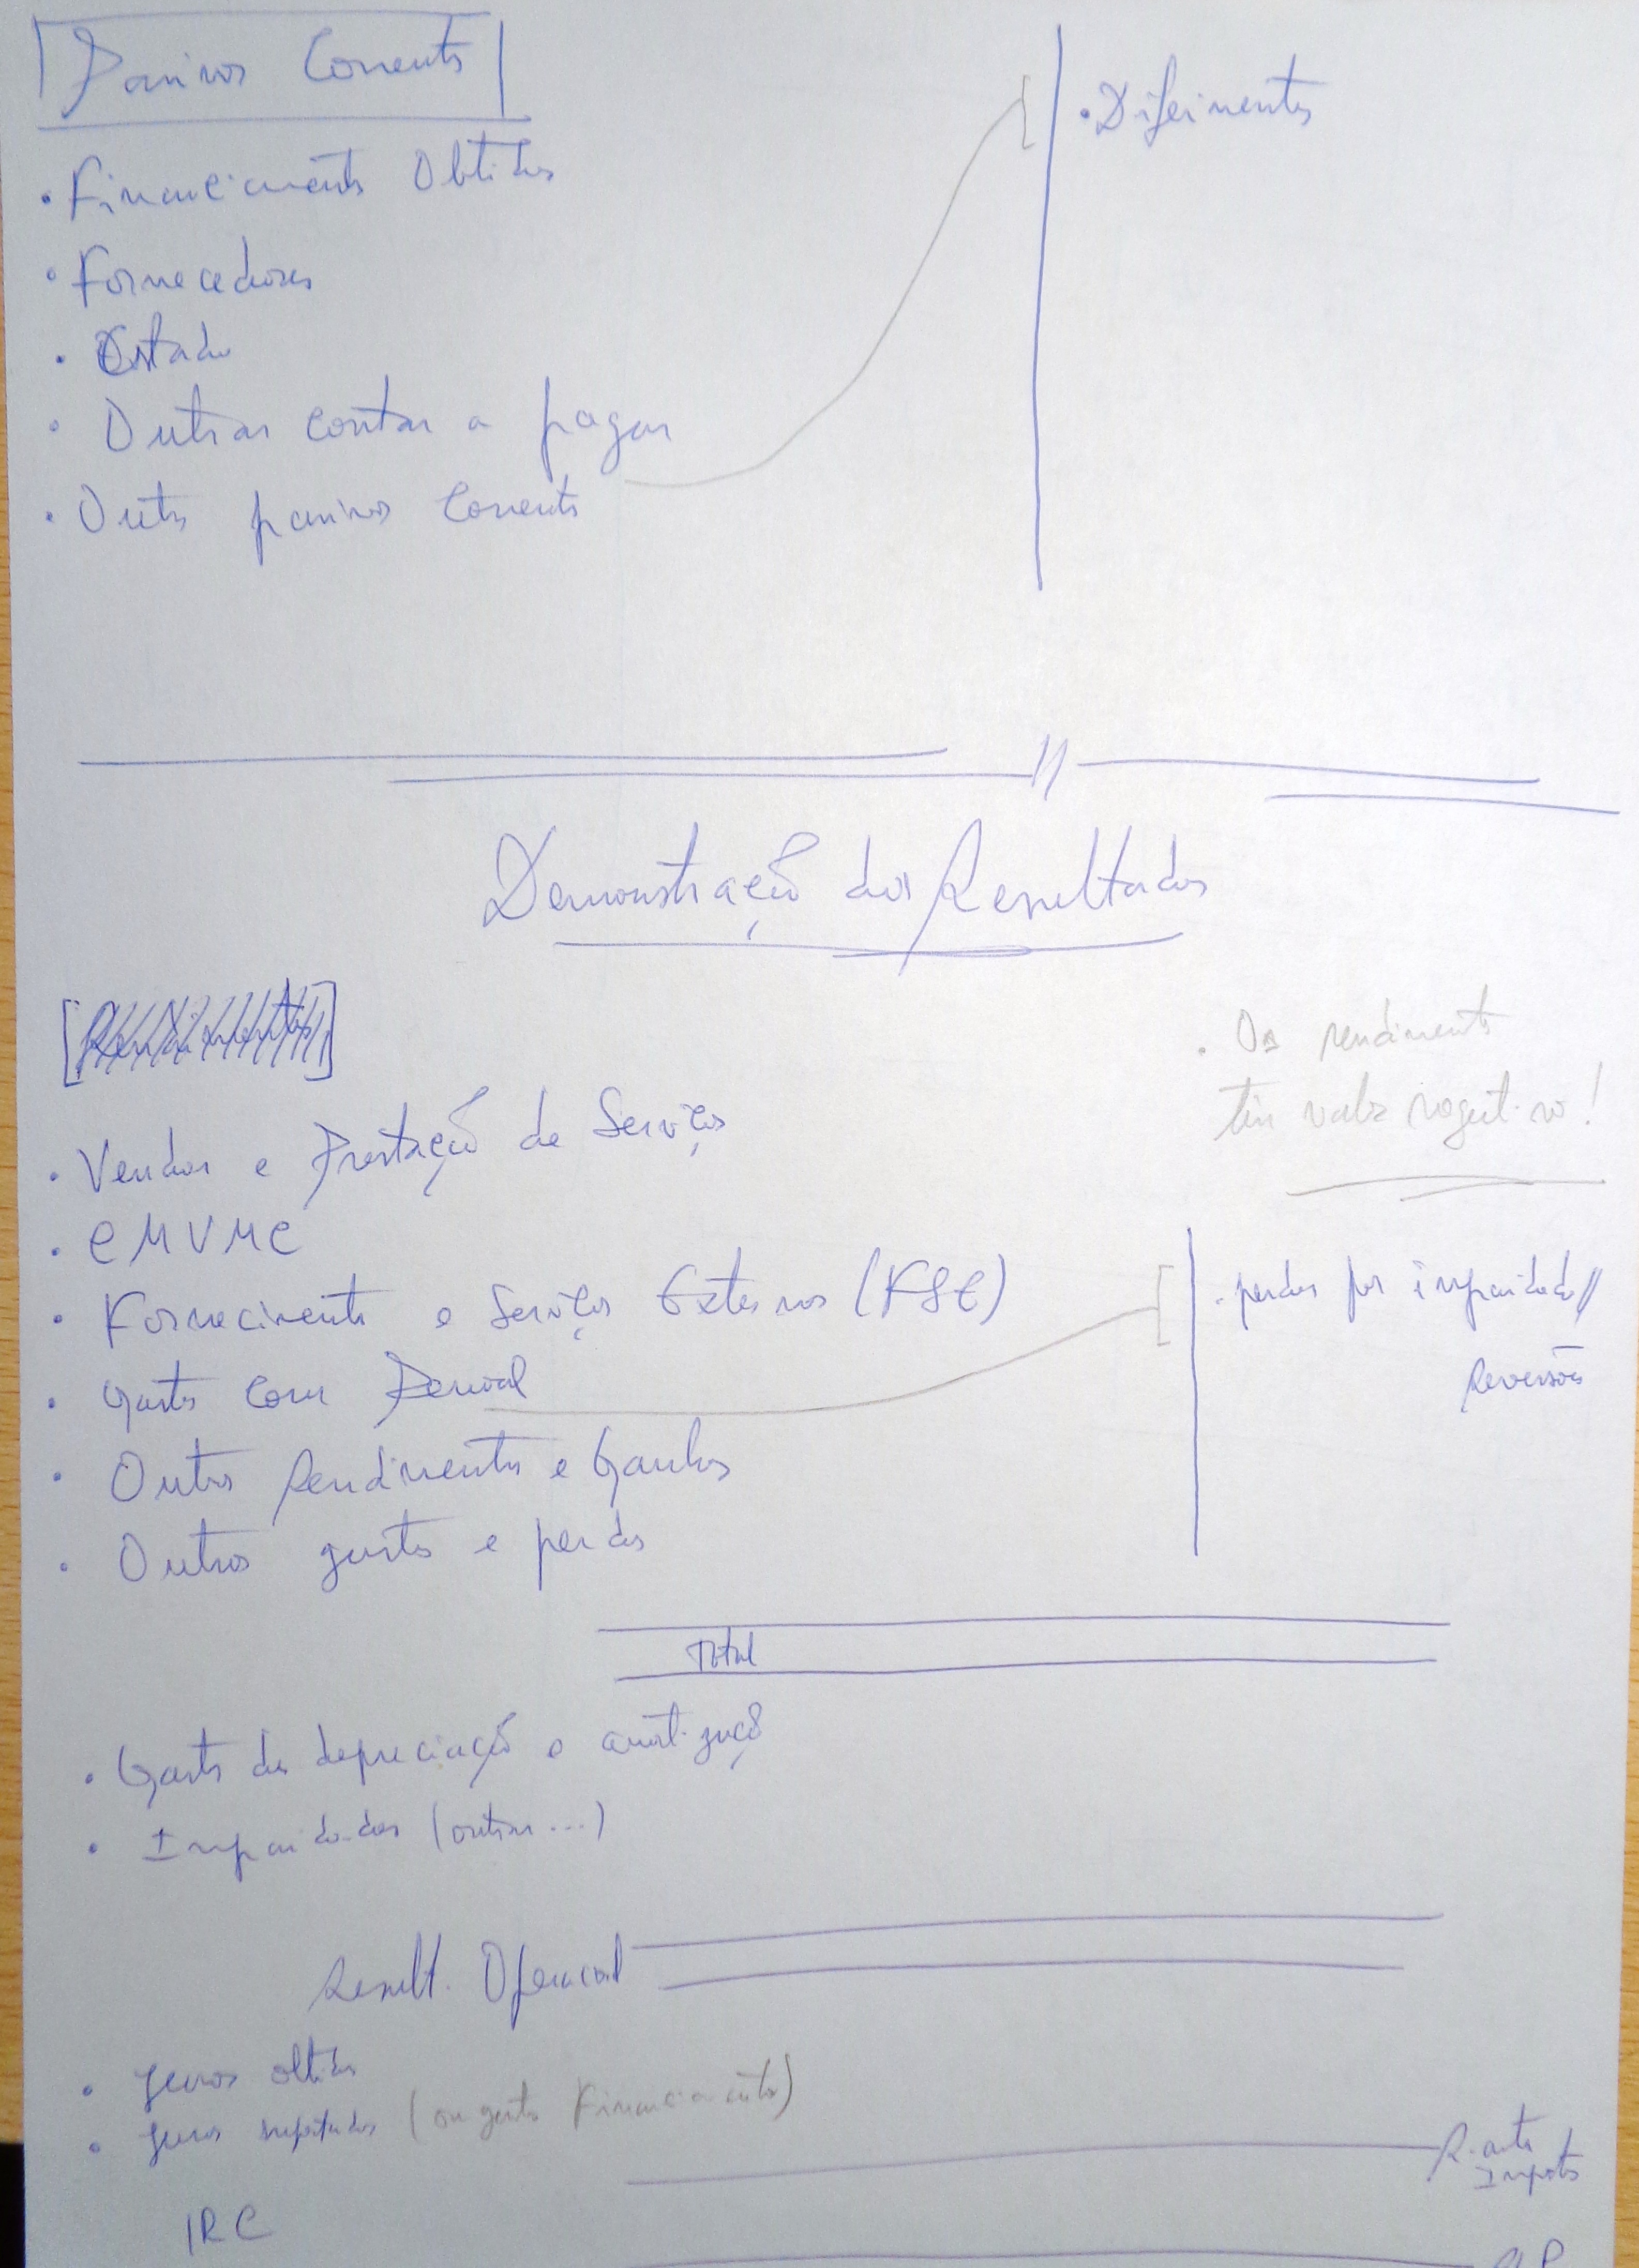 Passivos Correntes
• Diferimentos
• Financiamentos Obtidos
• Fornecedores
• Estado
• Outras contas a pagar
• Outros passivos correntes
Demonstração dos Resultados
• Os rendimentos
têm valor negativo!
• Vendas e Prestação de Serviços
• CMVMC
• Fornecimentos e Serviços Externos (FSE)
• perdas por imparidade//
Reversões
• Gastos com Pessoal
• Outros Rendimentos e Ganhos
• Outros gastos e perdas
Total
• Gastos de depreciação e amortização
• Imparidades (outras...)
Result. Operacional
• Juros obtidos
• Juros suportados (ou gastos Financiamento)
R. antes
Impostos
IRC